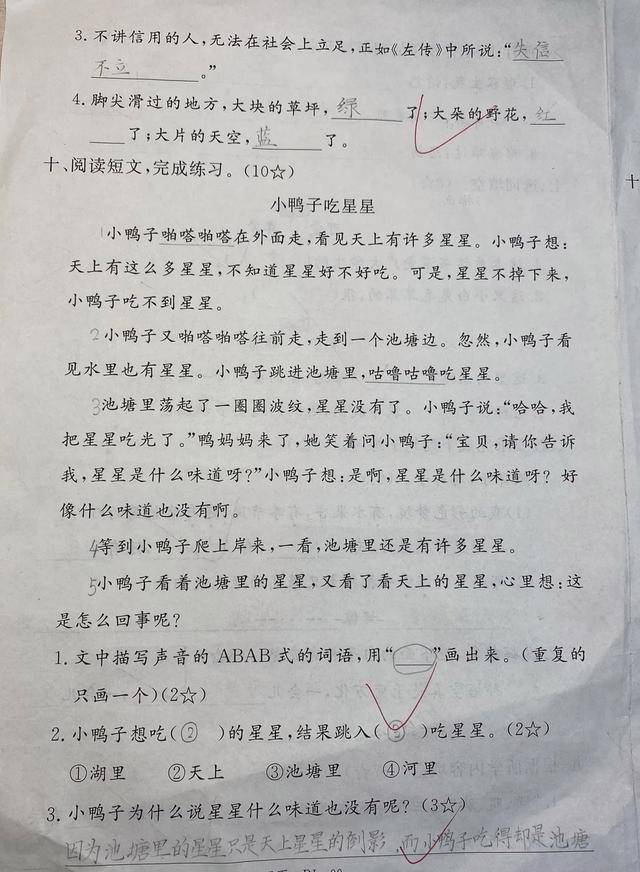 3. 不讲信用的人,无法在社会上立足,正如《左传》中所说:“失信
不立。”
4. 脚尖滑过的地方,大块的草坪,绿了;大朵的野花,红
了;大片的天空,蓝了。
十、阅读短文,完成练习。(10☆)
十
小鸭子吃星星
1小鸭子啪嗒啪嗒在外面走,看见天上有许多星星。小鸭子想:
天上有这么多星星,不知道星星好不好吃。可是,星星不掉下来,
小鸭子吃不到星星。
2小鸭子又啪嗒啪嗒往前走,走到一个池塘边。忽然,小鸭子看
见水里也有星星。小鸭子跳进池塘里,咕噜咕噜吃星星。
3池塘里荡起了一圈圈波纹,星星没有了。小鸭子说:“哈哈,我
把星星吃光了。”鸭妈妈来了,她笑着问小鸭子:“宝贝,请你告诉
我,星星是什么味道呀?”小鸭子想:是啊,星星是什么味道呀?好
像什么味道也没有啊。
4等到小鸭子爬上岸来,一看,池塘里还是有许多星星。
5小鸭子看着池塘里的星星,又看了看天上的星星,心里想:这
是怎么回事呢?
1. 文中描写声音的 ABAB 式的词语,用“____”画出来。(重复的
只画一个)(2☆)
2. 小鸭子想吃(②)的星星,结果跳入(③)吃星星。(2☆)
①湖里 ②天上 ③池塘里 ④河里
3. 小鸭子为什么说星星什么味道也没有呢?(3☆)
因为池塘里的星星只是天上星星的倒影,而小鸭子吃得却是池塘